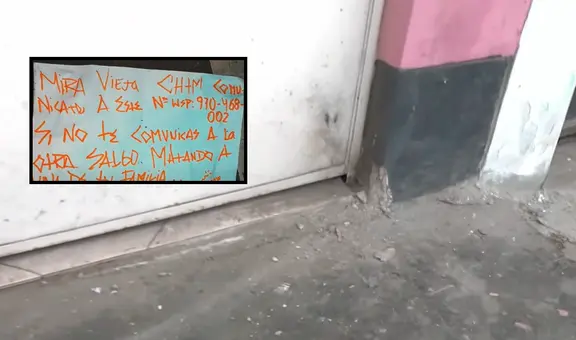 MIRA VIEJA CHTM COMU
NICATE A ESTE N° WSP: 970-468-
002
SI NO TE COMUNICAS A LA
OTRA SALGO. MATANDO A
DE TU FAMILIA